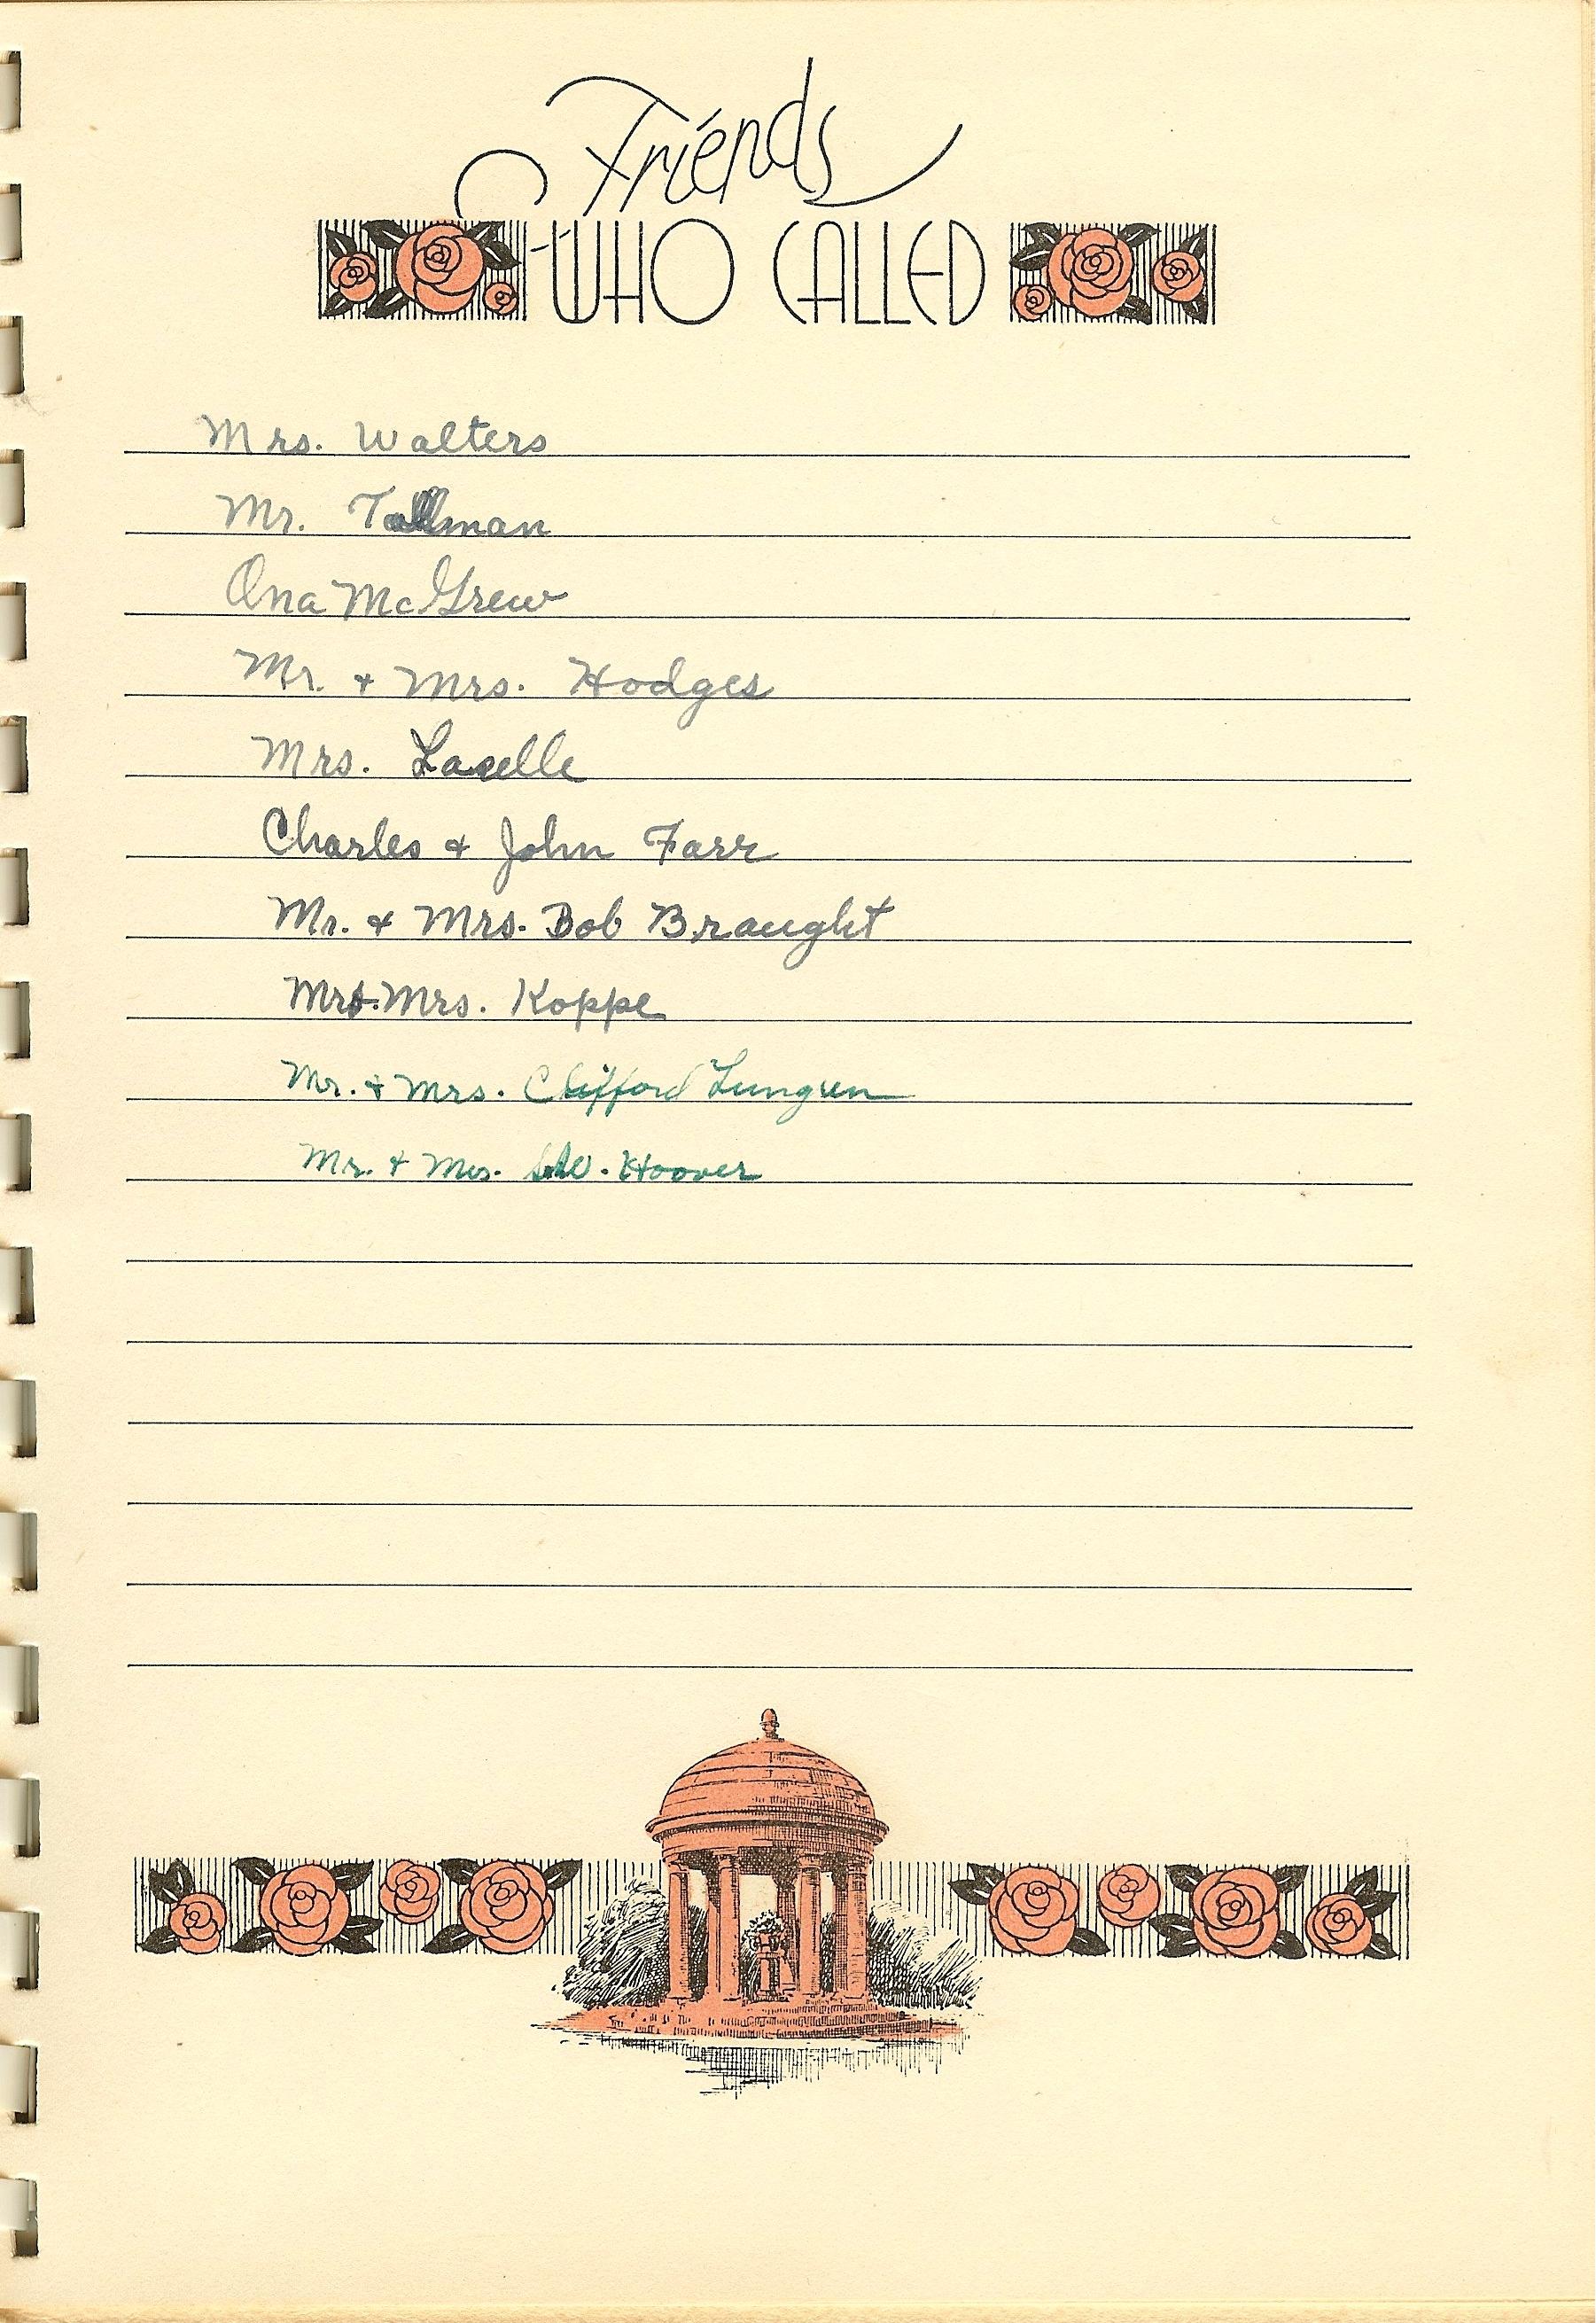 Friends
WHO CALLED
Mrs. Walters
Mr. Tallman
Ona McGrew
Mr. + Mrs. Hodges
Mrs. Lacelle
Charles + John Farr
Mr. + Mrs. Bob Braught
Mr. Mrs. Koppe
Mr. + Mrs. Clifford Lungren
Mr. + Mrs. Hoover